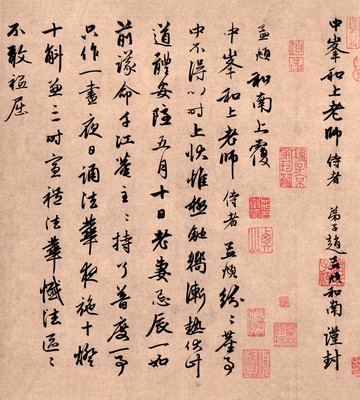 中峯和上老師 侍者 弟子趙孟頫和南謹封
孟頫和南上覆
中峯和上老師 侍者 孟頫紛〻塵事
中不得以時上狀惟極馳嚮漸熱伏計
道體安隱五月十日老妻忌辰一如
前議命千江菴主〻持了普度一事
只作一晝夜日誦法華夜施十燈
十斛兼三時宣禮法華懺法區〻
不敢屈